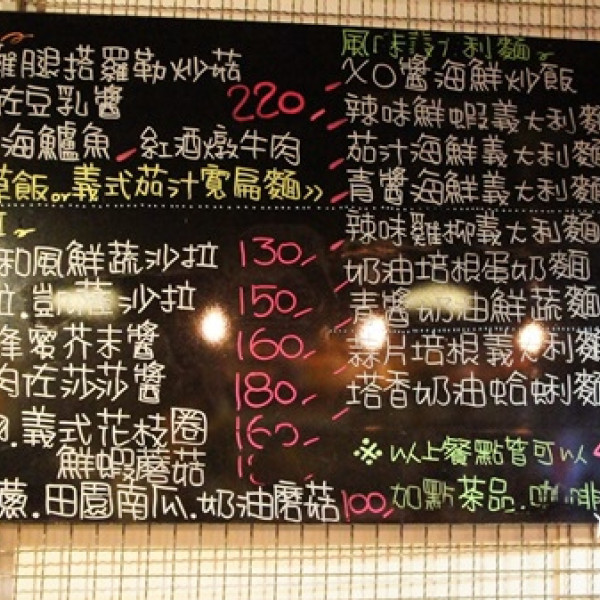 雞腿搭羅勒炒菇
佐豆乳醬 220
海鱸魚 紅酒燉牛肉
飯or義式茄汁寬扁麵
和風鮮蔬沙拉 130
凱薩沙拉 150
蜂蜜芥末醬 160
肉佐莎莎醬 180
義式花枝圈
鮮蝦蘑菇
田園南瓜.奶油蘑菇 100
利麵
XO醬海鮮炒飯
辣味鮮蝦義大利麵
茄汁海鮮義大利麵
青醬海鮮義大利麵
辣味雞柳義大利麵
奶油培根蛋奶麵
青醬奶油鮮蔬麵
蒜片培根義大利麵
塔香奶油蛤蜊麵
※以上餐點皆可以
加點茶品.咖啡